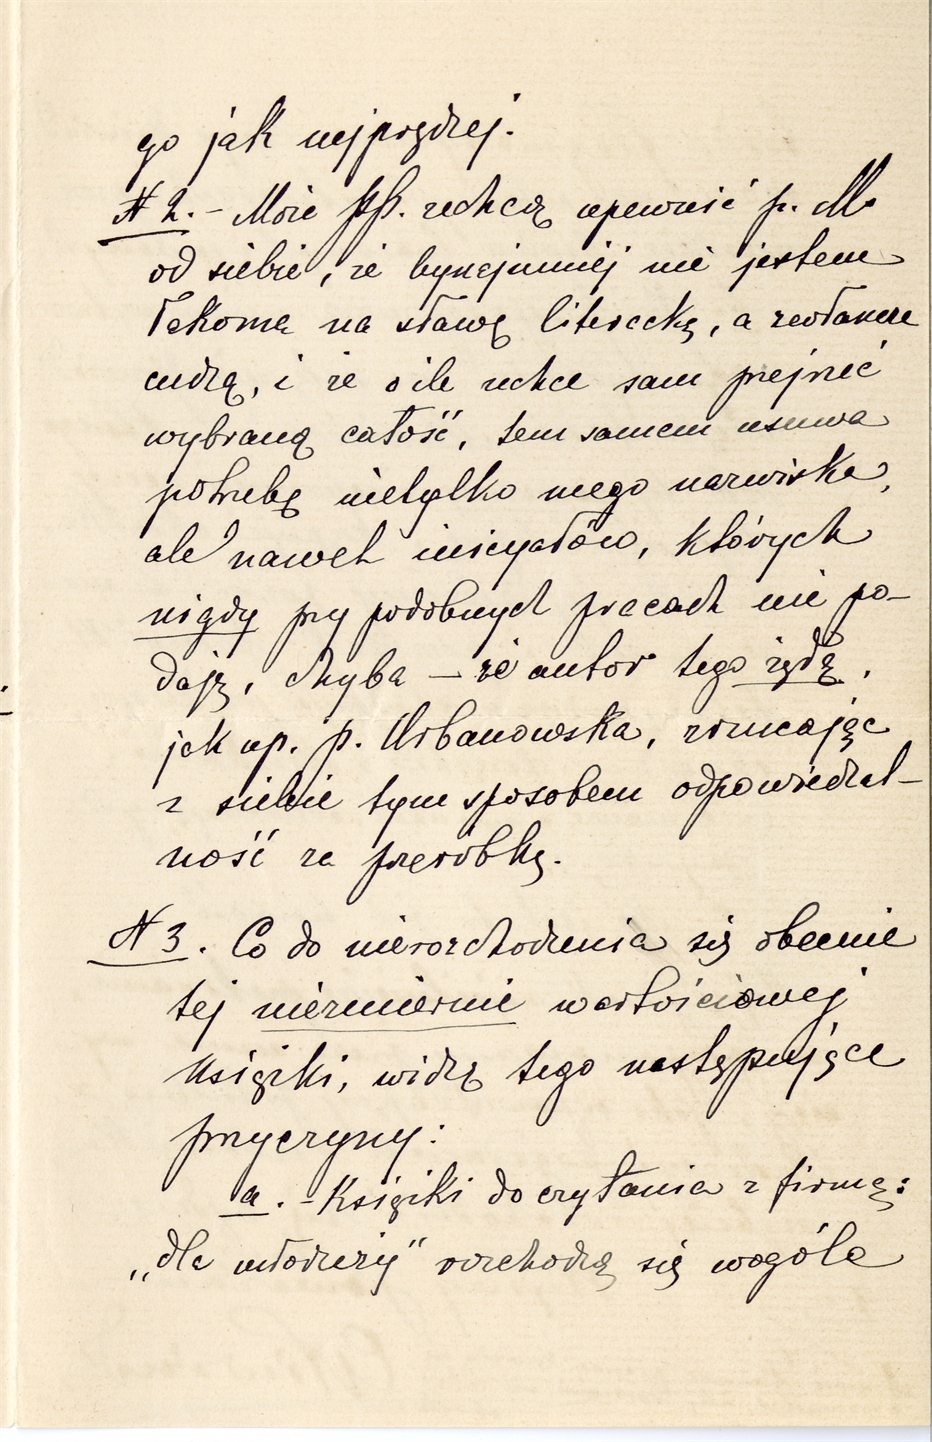 go jak najprędzej.
N 2. – Może PP. zechcą upewnić p. M.
od siebie, że bynajmniej nie jestem
łakomą na sławę literacką, a zwłaszcza
cudzą, i że o ile zechce sam przejrzeć
wybraną całość, tem samem usuwa
potrzebę nietylko mego nazwiska,
ale nawet inicyałów, których
nigdy przy podobnych pracach nie po–
dają, chyba – że autor tego żąda,
jak np. p. Urbanowska, zrzucając
z siebie tym sposobem odpowiedzial–
ność za przeróbkę.
N 3. Co do nierozchodzenia się obecnie
tej niezmiernie wartościowej
książki, widzę tego następujące
przyczyny:
a. – Książki do czytania z firmą:
„dla młodzieży" rozchodzą się wogóle